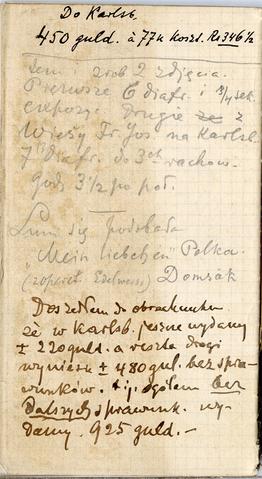 Do Karlsb.
450 guld. à 77 k koszt. Rs 346 1/2
Sem i zrob 2 zdjęcia.
Pierwsze 6 diafr. i 3/4 sek.
expozyc. Drugie ze z
Wieży Fr. Jos. na Karlsb.
7 diafr. do 3ch rachow.
godz 3 1/2 po poł.
Luni się podobała
"Mein liebchen" Polka
(z operet. Edelweiss) Domzak
Doszedłem do obrachunku
że w Karlsb. jeszcze wydamy
± 220 guld. a reszta drogi
wyniesie ± 480 gul. bez spra-
wunków. t.j. ogółem bez
dalszych sprawunk. wy-
damy. 925 guld. –